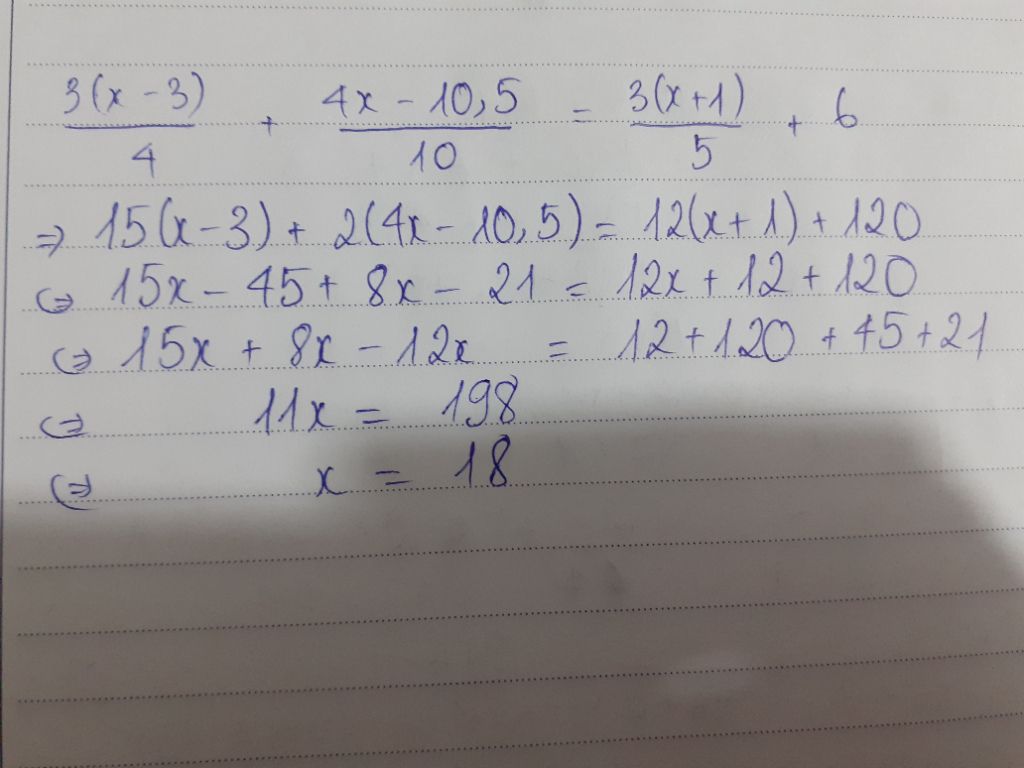 3(x - 3)/4 + 4x - 10,5/10 = 3(x+1)/5 + 6
=> 15(x - 3) + 2(4x - 10,5) = 12(x + 1) + 120
<=> 15x - 45 + 8x - 21 = 12x + 12 + 120
<=> 15x + 8x - 12x = 12 + 120 + 45 + 21
<=> 11x = 198
<=> x = 18